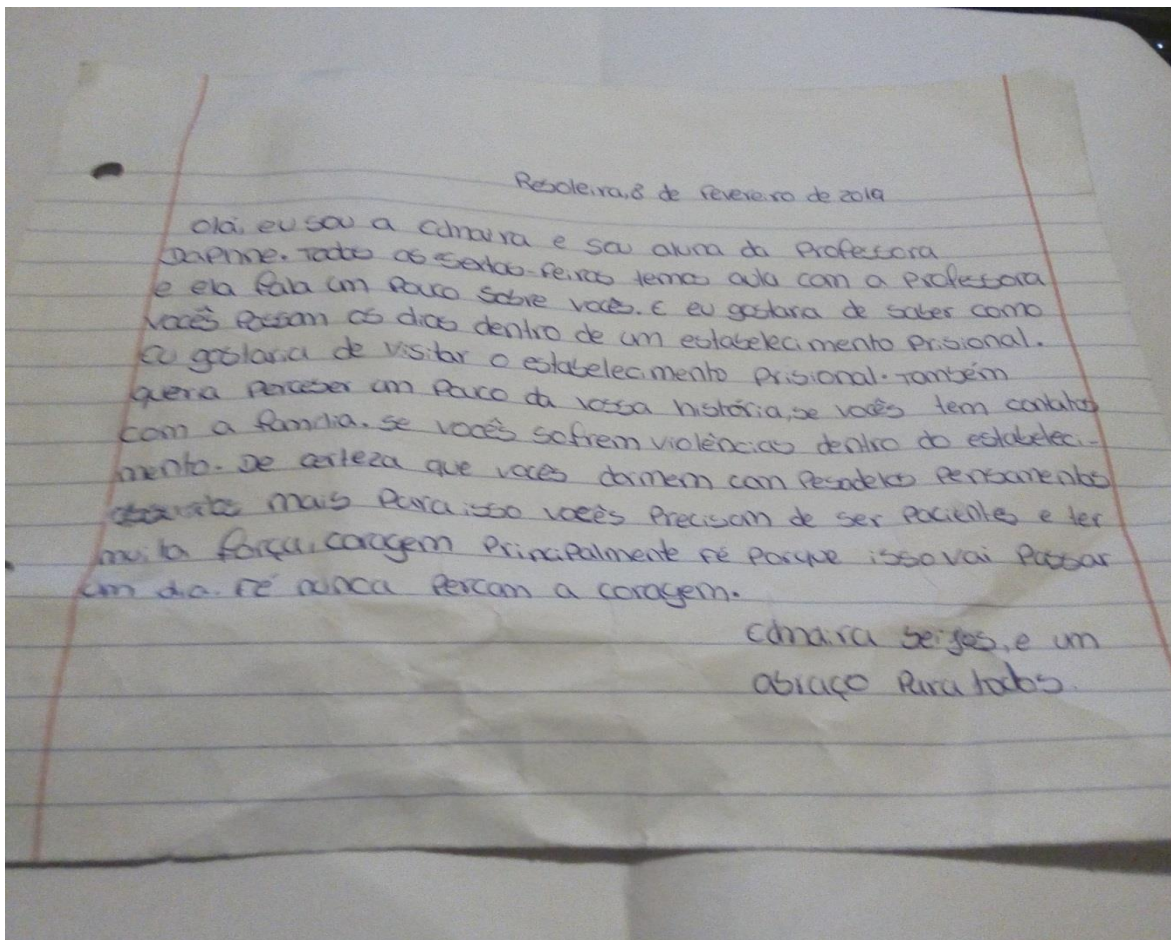 Reboleira, 8 de fevereiro de 2019
Olá, eu sou a e sou aluna da Professora
Daphne. Todas as sextas-feiras temos aula com a professora
e ela fala um pouco sobre vocês. E eu gostaria de saber como
vocês passam os dias dentro de um estabelecimento prisional.
Eu gostaria de visitar o estabelecimento prisional. Também
queria perceber um pouco da vossa história, se vocês tem contatos
com a família. se vocês sofrem violências dentro do estabeleci-
mento. De certeza que vocês dormem com Pesadelos Pensamentos
mais para isso vocês precisam de ser pacientes e ter
muita força, coragem principalmente fé porque isso vai passar
um dia. Fé nunca percam a coragem.
beijos, e um
abraço para todos.